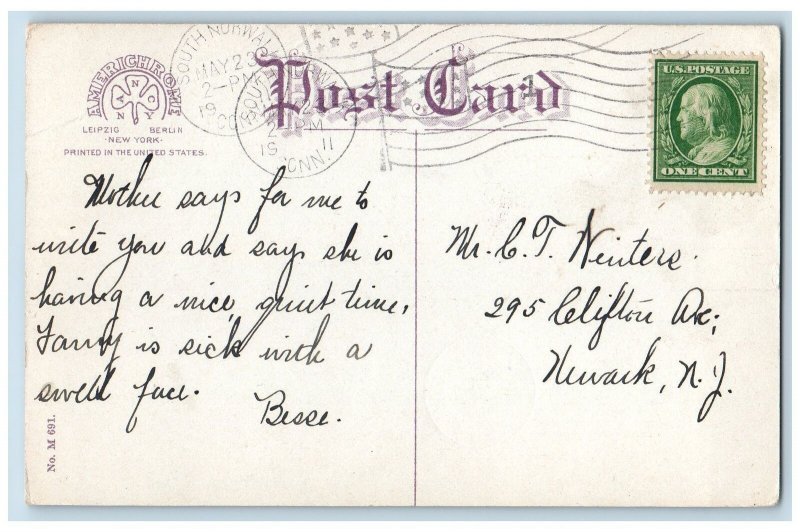 AMERICHROME
A N C N Y
LEIPZIG BERLIN
·NEW YORK·
PRINTED IN THE UNITED STATES.
SOUTH NORWAL
MAY 23
2-PM
19
CO
SOU
2-PM
19 11
CONN.
Post Card
U.S. POSTAGE
ONE CENT
Mother says for me to
write you and says she is
having a nice, quiet time,
Fanny is sick with a
swell face.
Besse.
Mr. C. T. Winters.
295 Clifton Ave;
Newark, N. J.
No. M 691.